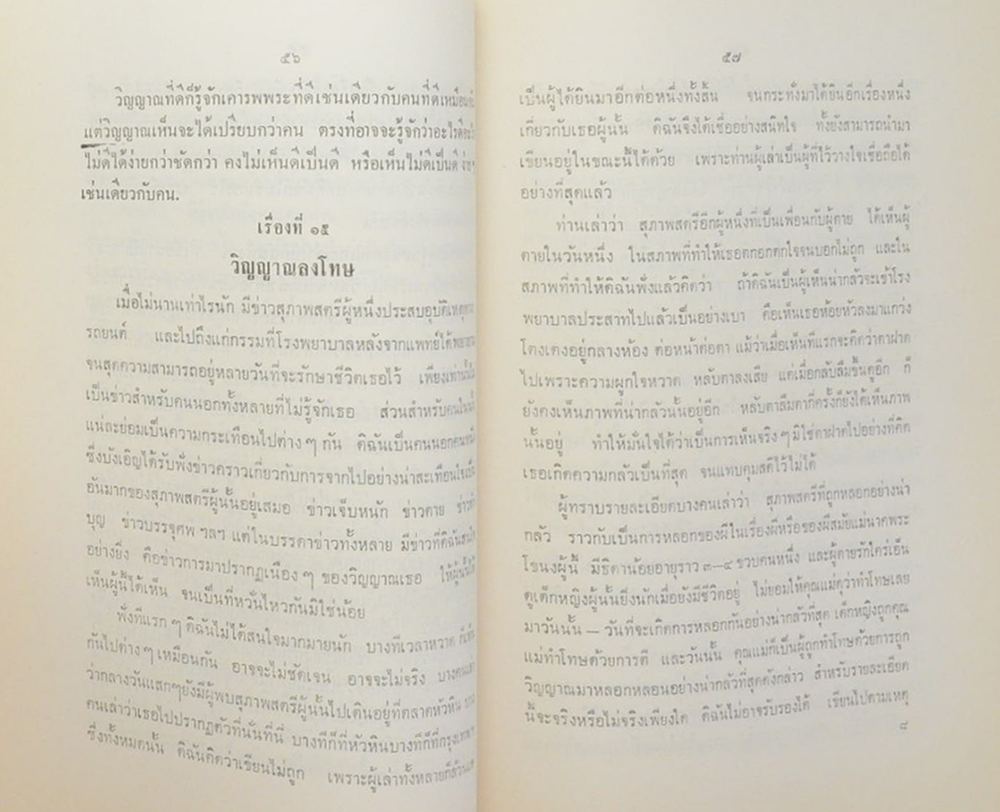 ๕๖
วิญญาณที่ดีก็รู้จักเคารพพระที่ดีเช่นเดียวกับคนที่ดีเหมือนกัน
แต่วิญญาณเห็นจะได้เปรียบกว่าคน ตรงที่อาจจะรู้จักว่าอะไรดีอะไร
ไม่ดีได้ง่ายกว่าชัดกว่า คงไม่เห็นดีเป็นดี หรือเห็นไม่ดีเป็นดี ง่ายๆ
เช่นเดียวกับคน.
เรื่องที่ ๑๕
วิญญาณลงโทษ
เมื่อไม่นานเท่าไรนัก มีข่าวสุภาพสตรีผู้หนึ่งประสบอุบัติเหตุ
รถยนต์ และไปถึงแก่กรรมที่โรงพยาบาลหลังจากแพทย์ได้พยายาม
จนสุดความสามารถอยู่หลายวันที่จะรักษาชีวิตเธอไว้ เพียงเท่านั้น
เป็นข่าวสำหรับคนนอกทั้งหลายที่ไม่รู้จักเธอ ส่วนสำหรับคนใน
แน่ละย่อมเป็นความกระเทือนไปต่าง ๆ กัน ดิฉันเป็นคนนอกคนหนึ่ง
ซึ่งบังเอิญได้รับฟังข่าวคราวเกี่ยวกับการจากไปอย่างน่าสะเทือนใจ
อันมากของสุภาพสตรีผู้นั้นอยู่เสมอ ข่าวเจ็บหนัก ข่าวตาย
บุญ ข่าวบรรจุศพ ฯลฯ แต่ในบรรดาข่าวทั้งหลาย มีข่าวที่ดิฉันสนใจ
อย่างยิ่ง คือข่าวการมาปรากฏเนือง ๆ ของวิญญาณเธอ ให้ผู้นั้น
เห็นผู้นี้ได้เห็น จนเป็นที่หวั่นไหวกันมิใช่น้อย
ฟังทีแรก ๆ ดิฉันไม่ได้สนใจมากมายนัก บางทีเวลาหวาด ก็เห็น
กันไปต่าง ๆ เหมือนกัน อาจจะไม่ชัดเจน อาจจะไม่จริง บางคน
ว่ากลางวันแสกๆยังมีผู้พบสุภาพสตรีผู้นั้นไปเดินอยู่ที่ตลาดหัวหิน บาง
คนเล่าว่าเธอไปปรากฏตัวที่นั่นที่นี่ บางทีก็ที่หัวหินบางทีก็ที่กรุงเทพ
ซึ่งทั้งหมดนั้น ดิฉันคิดว่าเขียนไม่ถูก เพราะผู้เล่าทั้งหลายก็ล้วน
๕๗
เป็นผู้ได้ยินมาอีกต่อหนึ่งทั้งสิ้น จนกระทั่งมาได้ยินอีกเรื่องหนึ่ง
เกี่ยวกับเธอผู้นั้น ดิฉันจึงได้เชื่ออย่างสนิทใจ ทั้งยังสามารถนำมา
เขียนอยู่ในขณะนี้ได้ด้วย เพราะท่านผู้เล่าเป็นผู้ที่ไว้วางใจเชื่อถือได้
อย่างที่สุดแล้ว
ท่านเล่าว่า สุภาพสตรีอีกผู้หนึ่งที่เป็นเพื่อนกับผู้ตาย ได้เห็นผู้
ตายในวันหนึ่ง ในสภาพที่ทำให้เธอตกอกตกใจจนบอกไม่ถูก และใน
สภาพที่ทำให้ดิฉันฟังแล้วคิดว่า ถ้าดิฉันเป็นผู้เห็นน่ากลัวจะเข้าโรง
พยาบาลประสาทไปแล้วเป็นอย่างเบา คือเห็นเธอห้อยหัวลงมาแกว่ง
โตงเตงอยู่กลางห้อง ต่อหน้าต่อตา แม้ว่าเมื่อเห็นทีแรกจะคิดว่าตาฝาด
ไปเพราะความผูกใจหวาด หลับตาลงเสีย แต่เมื่อกลับลืมขึ้นดูอีก ก็
ยังคงเห็นภาพที่น่ากลัวนั้นอยู่อีก หลับตาลืมตากี่ครั้งก็ยังได้เห็นภาพ
นั้นอยู่ ทำให้มั่นใจได้ว่าเป็นการเห็นจริง ๆ มิใช่ตาฝาดไปอย่างที่คิด
เธอเกิดความกลัวเป็นที่สุด จนแทบคุมสติไว้ไม่ได้
ผู้ทราบรายละเอียดบางคนเล่าว่า สุภาพสตรีที่ถูกหลอกอย่างน่า
กลัว ราวกับเป็นการหลอกของผีในเรื่องผีหรือของผีสมัยแม่นาคพระ
โขนงผู้นี้ มีธิดาน้อยอายุราว ๓–๔ ขวบคนหนึ่ง และผู้ตายรักใคร่เอ็น
ดูเด็กหญิงผู้นั้นยิ่งนักเมื่อยังมีชีวิตอยู่ ไม่ยอมให้คุณแม่ดุว่าทำโทษเลย
มาวันนั้น — วันที่จะเกิดการหลอกกันอย่างน่ากลัวที่สุด เด็กหญิงถูกคุณ
แม่ทำโทษด้วยการตี และวันนั้น คุณแม่ก็เป็นผู้ถูกทำโทษด้วยการถูก
วิญญาณมาหลอกหลอนอย่างน่ากลัวที่สุดดังกล่าว สำหรับรายละเอียด
นี้จะจริงหรือไม่จริงเพียงใด ดิฉันไม่อาจรับรองได้ เขียนไปตามเหตุ
๘